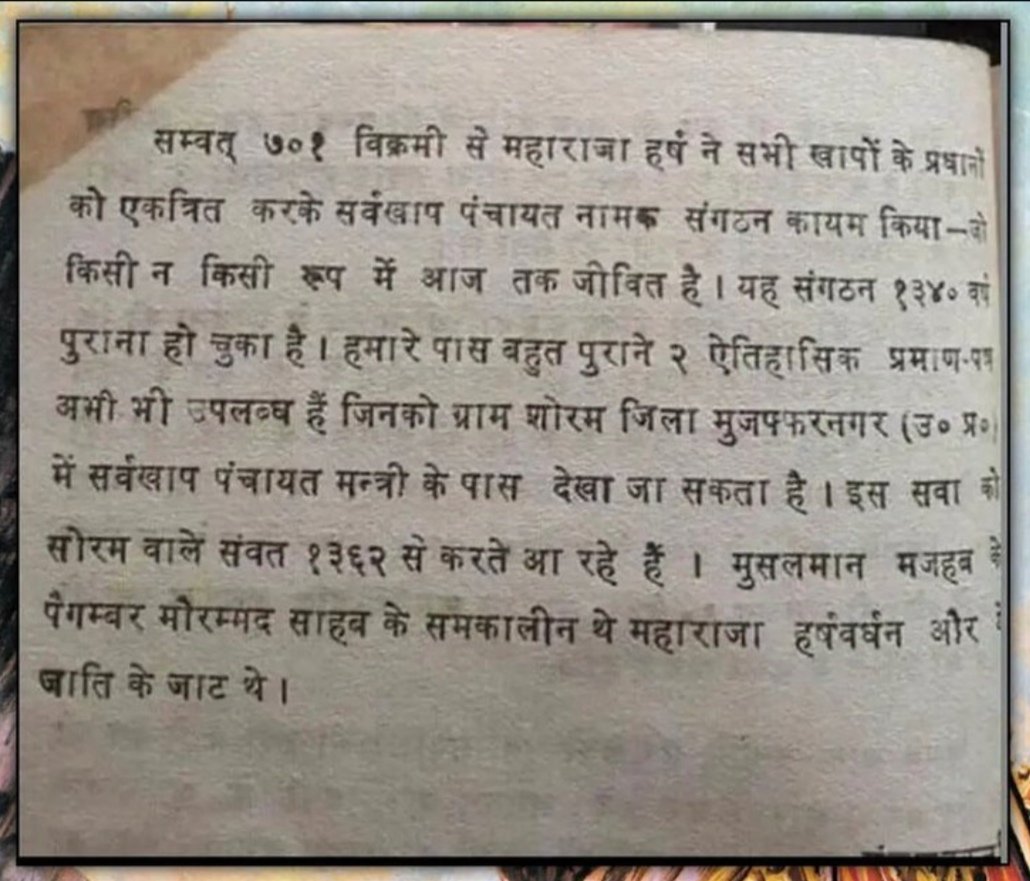 सम्वत् ७०१ विक्रमी से महाराजा हर्ष ने सभी खापों के प्रधानों
को एकत्रित करके सर्वखाप पंचायत नामक संगठन कायम किया—जो
किसी न किसी रूप में आज तक जीवित है । यह संगठन १३४० वर्ष
पुराना हो चुका है । हमारे पास बहुत पुराने २ ऐतिहासिक प्रमाण-पत्र
अभी भी उपलब्ध हैं जिनको ग्राम शोरम जिला मुजफ्फरनगर (उ० प्र०)
में सर्वखाप पंचायत मन्त्री के पास देखा जा सकता है । इस सवा को
सोरम वाले संवत १३६२ से करते आ रहे हैं । मुसलमान मजहब के
पैगम्बर मौरम्मद साहब के समकालीन थे महाराजा हर्षवर्धन और
जाति के जाट थे ।